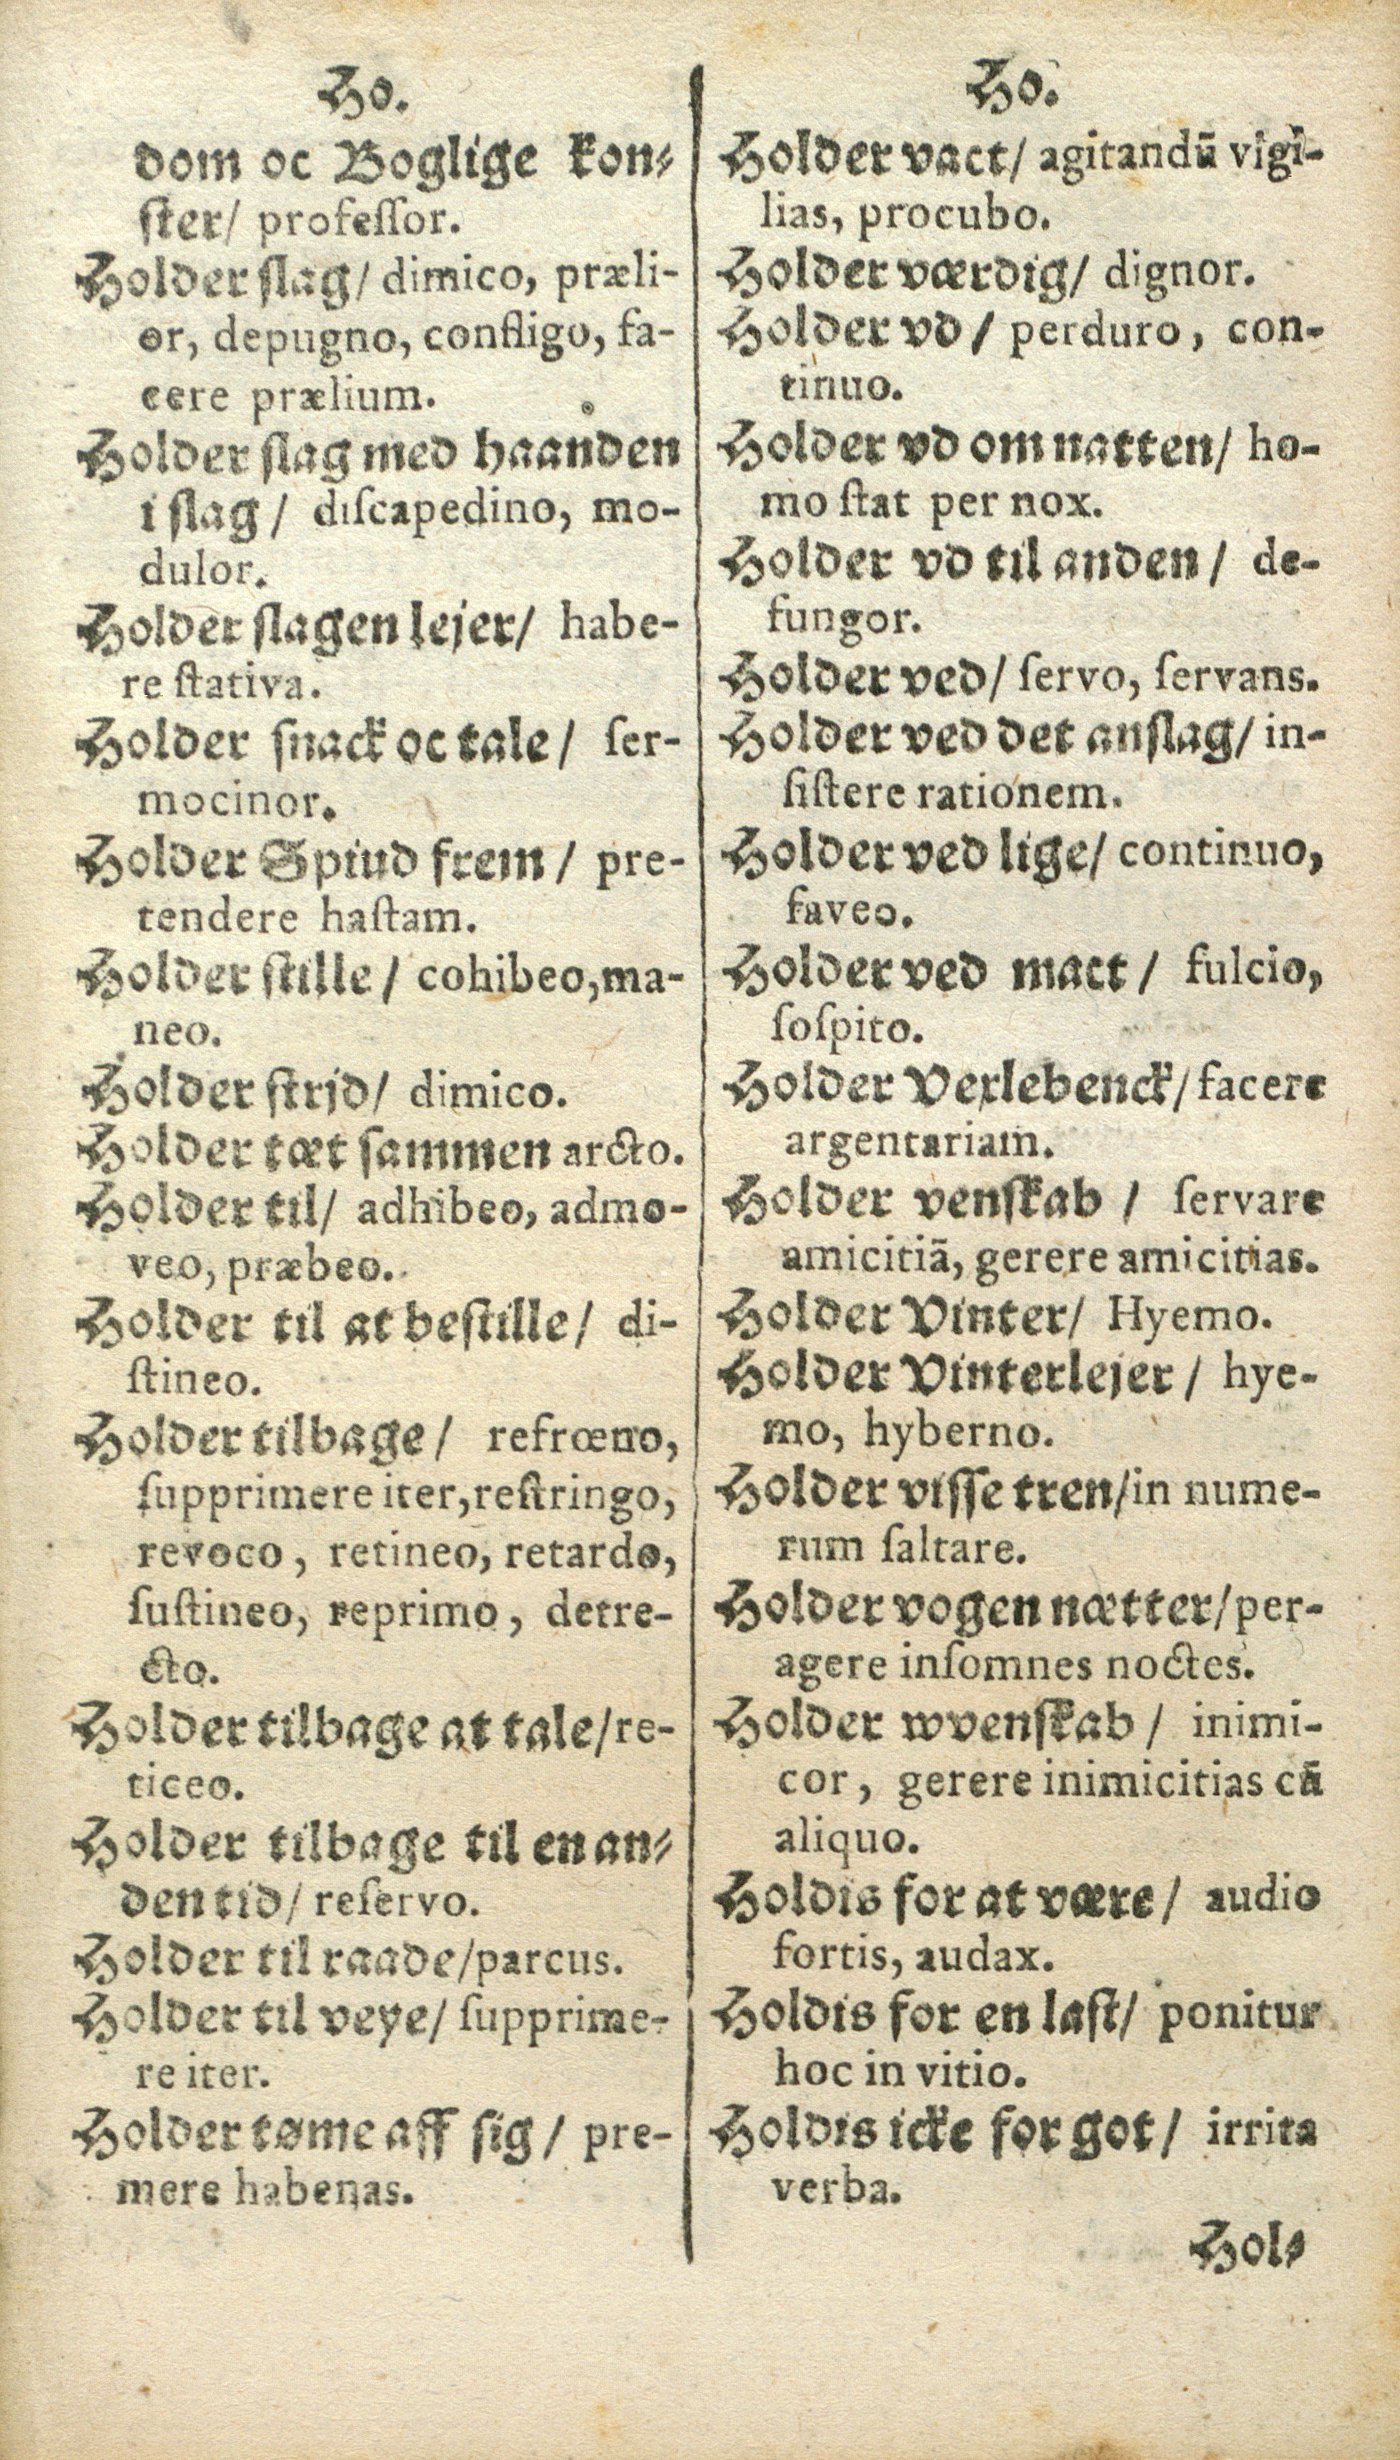 Ho.
dom oc Boglige kon⸗
ſter/ profeſſor.
Holder ſlag/ dimico, præli-
or, depugno, confligo, fa-
cere prælium.
Holder ſlag med haanden
i ſlag/ diſcapedino, mo-
dulor.
Holder ſlagen lejer/ habe-
re ſtativa.
Holder ſnack oc tale/ ſer-
mocinor.
Holder Spiud frem/ pre-
tendere haſtam.
Holder ſtille/ cohibeo, ma-
neo.
Holder ſtrjd/ dimico.
Holder tæt ſammen arcto.
Holder til/ adhibeo, admo-
veo, præbeo.
Holder til at beſtille/ di-
ſtineo.
Holder tilbage/ refrœno,
ſupprimere iter, reſtringo,
revoco, retineo, retardo,
ſuſtineo, reprimo, detre-
cto.
Holder tilbage at tale/ re-
ticeo.
Holder tilbage til en an⸗
den tid/ reſervo.
Holder til raade/ parcus.
Holder til veye/ ſupprime-
re iter.
Holder tøme aff ſig/ pre-
mere habenas.
Ho.
Holder vact/ agitandū vigi-
lias, procubo.
Holder værdig/ dignor.
Holder vd/ perduro, con-
tinuo.
Holder vd om natten/ ho-
mo ſtat per nox.
Holder vd til anden/ de-
fungor.
Holder ved/ ſervo, ſervans.
Holder ved det anſlag/ in-
ſiſtere rationem.
Holder ved lige/ continuo,
faveo.
Holder ved mact/ fulcio,
ſoſpito.
Holder Vexlebenck/ facere
argentariam.
Holder venſkab/ ſervare
amicitiā, gerere amicitias.
Holder Vinter/ Hyemo.
Holder Vinterlejer/ hye-
mo, hyberno.
Holder viſſe tren/ in nume-
rum ſaltare.
Holder vogen nætter/ per-
agere inſomnes noctes.
Holder wvenſkab/ inimi-
cor, gerere inimicitias cū
aliquo.
Holdis for at være/ audio
fortis, audax.
Holdis for en laſt/ ponitur
hoc in vitio.
Holdis icke for got/ irrita
verba.
Hol⸗